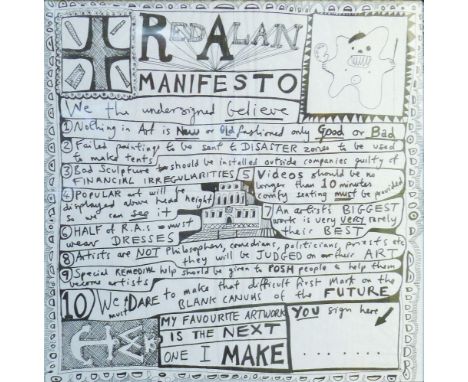 RED ALAN
MANIFESTO
We the undersigned believe
1) Nothing in Art is New or Old fashioned only Good or Bad
2) Failed paintings to be sent to DISASTER zones to be used
to make tents
3) Bad Sculpture should be installed outside companies guilty of
FINANCIAL IRREGULARITIES
5) Videos should be no
longer than 10 minutes
comfy seating must be provided
4) POPULAR art will be
displayed above head height
so we can see it
7) An artist's BIGGEST
work is very very rarely
their BEST
6) HALF of R.A.s must
wear DRESSES
8) Artists are NOT Philosophers, comedians, politicians, priests etc
they will be JUDGED on their ART
9) Special REMEDIAL help should be given to POSH people to help them
become artists
10) We must DARE to make that difficult first mark on the
BLANK CANVAS of the FUTURE
MY FAVOURITE ARTWORK
IS THE NEXT
ONE I MAKE
YOU sign here
......